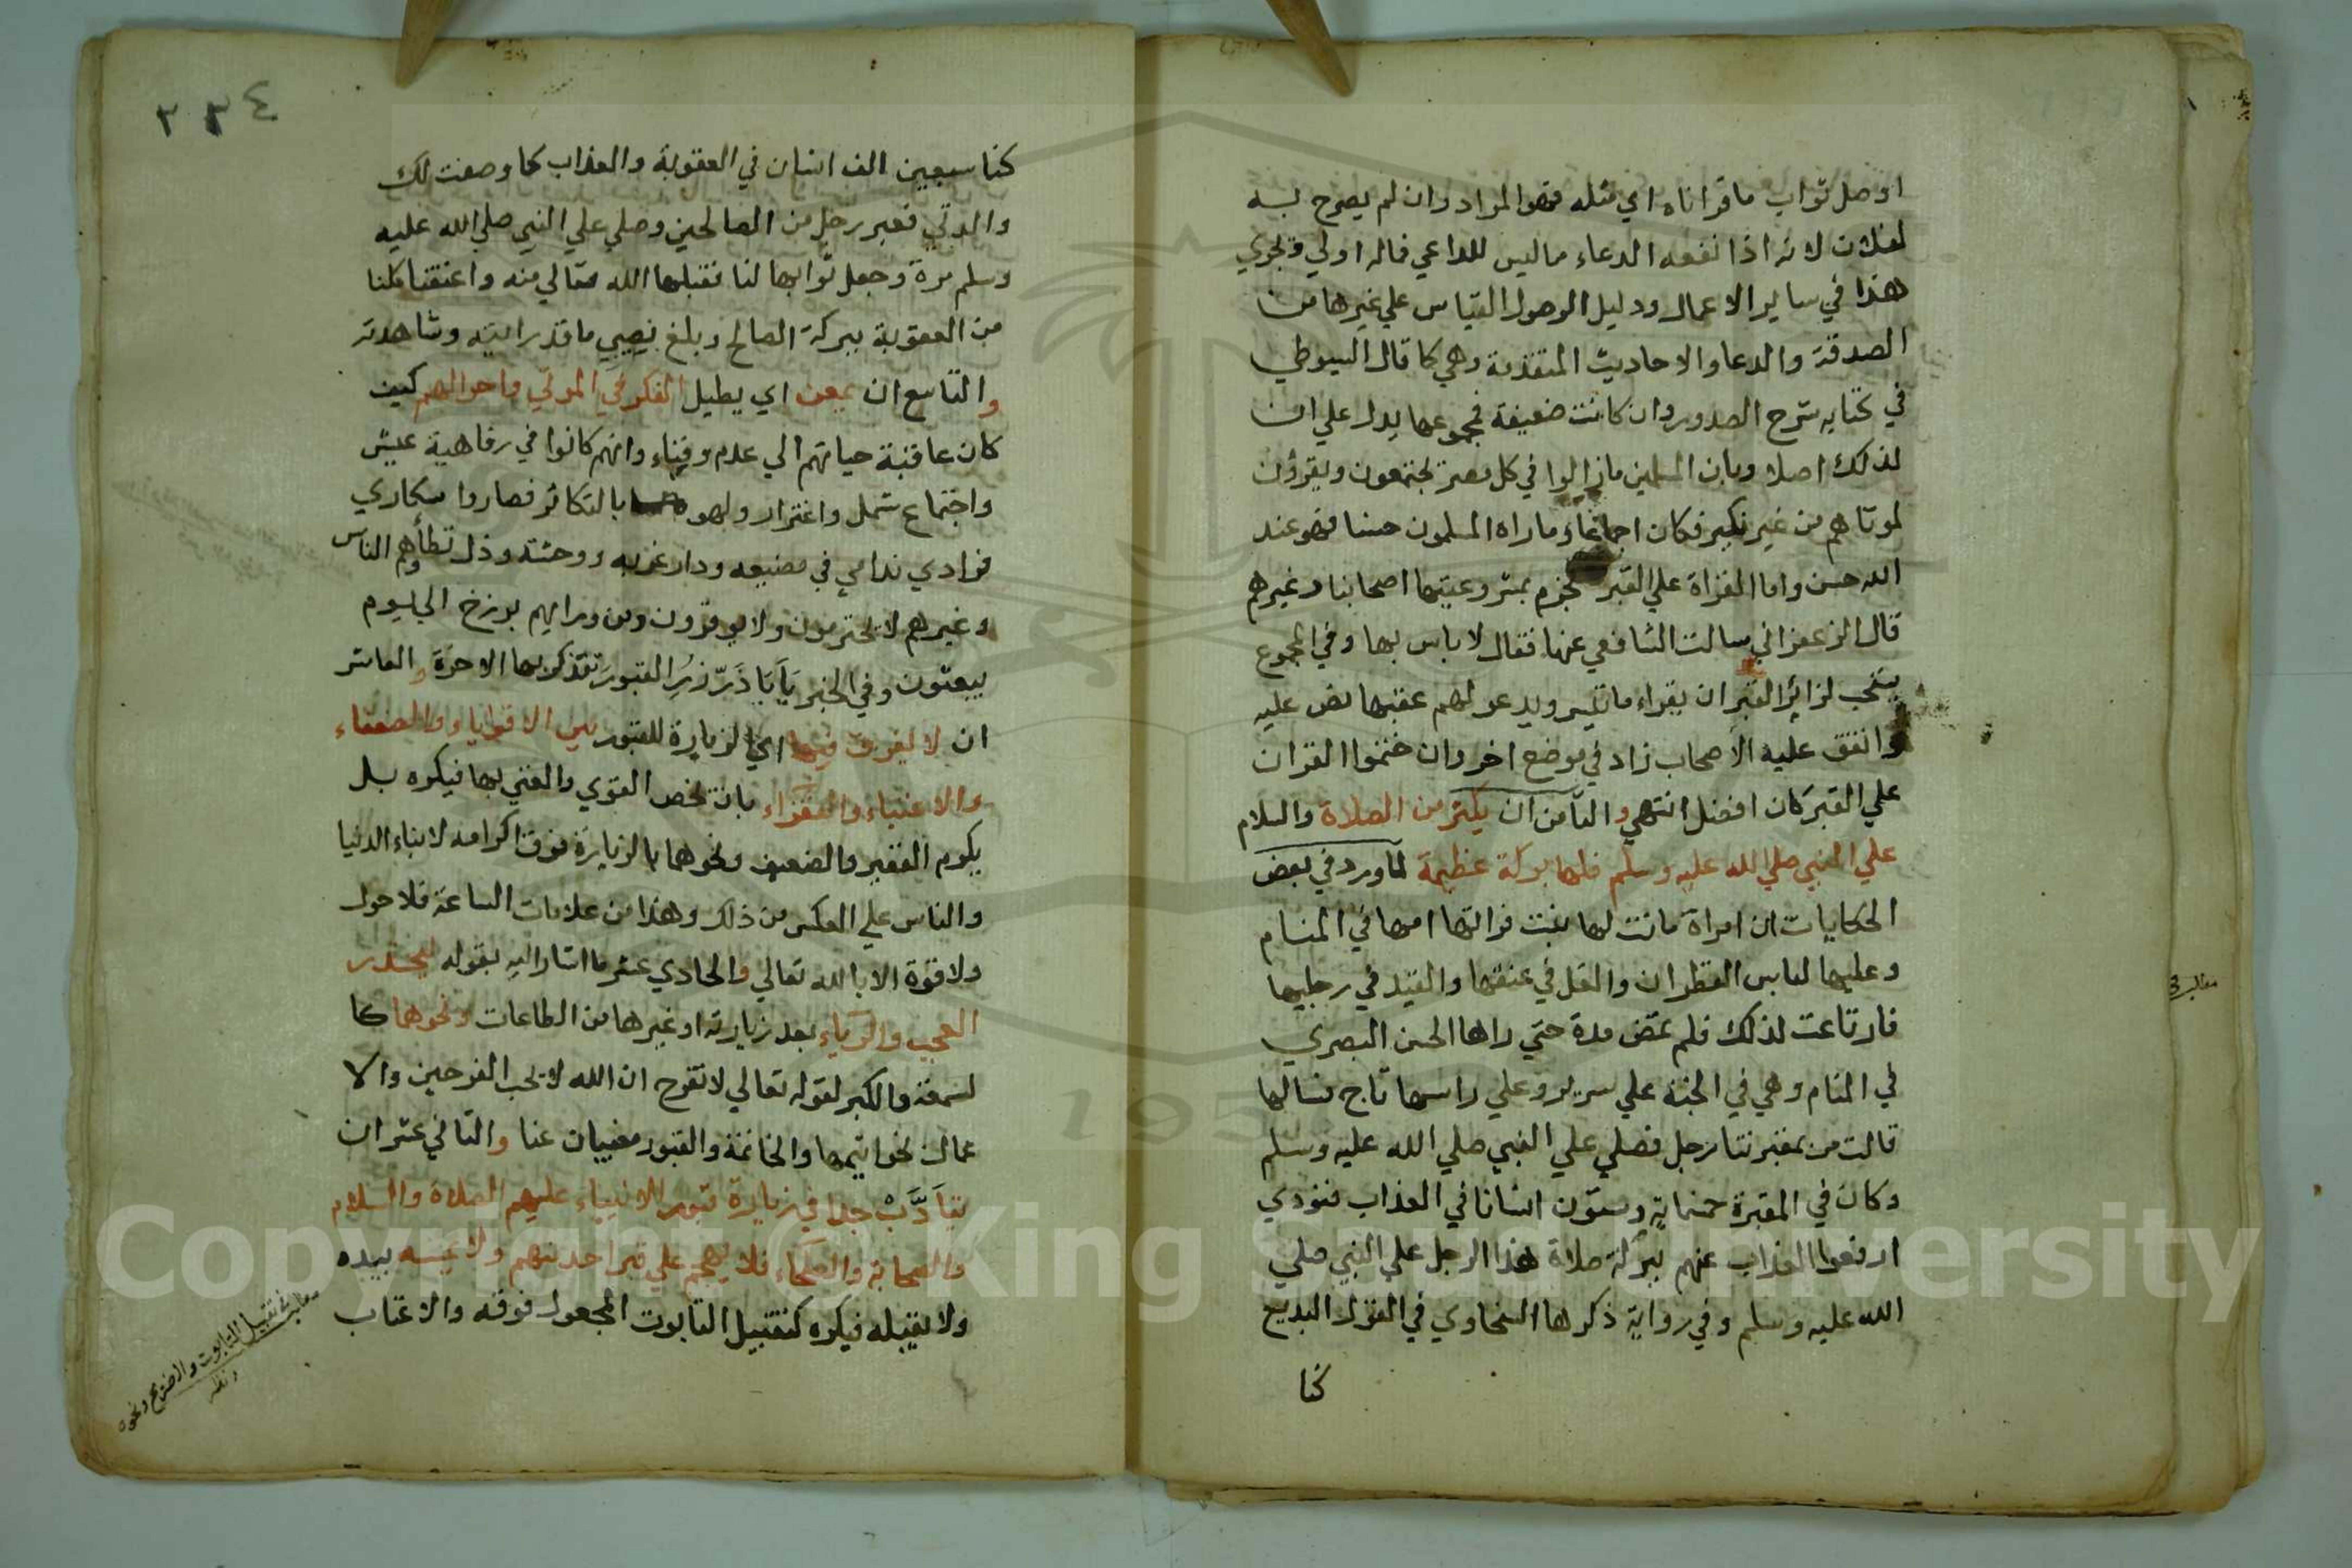 اوصل ثواب ما قراناه اي مثله فهو المراد وان لم يصرح به
لفلان لانه اذا نفعه الدعاء ما ليس للداعي فماله اولي ويجري
هذا في ساير الاعمال ودليل الوصول القياس علي غيرها من
الصدقة والدعا والاحاديث المتقدمة وهي كما قال السيوطي
في كتابه شرح الصدور وان كانت ضعيفة فمجموعها يدل علي ان
لذلك اصلا وبان المسلمين مازالوا في كل مصر يجتمعون ويقرؤن
لموتاهم من غير نكير فكان اجماعا وما راه المسلمون حسنا فهو عند
الله حسن واما القراة علي القبر فجزم بمشروعيتها اصحابنا وغيرهم
قال الزعفراني سالت الشافعي عنها فقال لا باس بها وفي المجموع
يستحب لزائر القبر ان يقراء ما تيسر ويدعو لهم عقبها نص عليه
واتفق عليه الاصحاب زاد في موضع اخر وان ختموا القران
علي القبر كان افضل انتهي والثامن ان يكثر من الصلاة والسلام
علي النبي صلي الله عليه وسلم فلها بركة عظيمة لما ورد في بعض
الحكايات ان امراة ماتت لها بنت فراتها امها في المنام
وعليها لباس القطران والغل في عنقها والقيد في رجليها
فارتاعت لذلك فلم تمض مدة حتي راها الحسن البصري
في المنام وهي في الجنة علي سرير وعلي راسها تاج فسالها
قالت مر بمقبرتنا رجل فصلي علي النبي صلي الله عليه وسلم
وكان في المقبرة خمسماية وستون انسانا في العذاب فنودي
ارفعوا العذاب عنهم ببركة صلاة هذا الرجل علي النبي صلي
الله عليه وسلم وفي رواية ذكرها السخاوي في القول البديع
كنا
٢٣٤
كنا سبعين الف انسان في العقوبة والعذاب كما وصفت لك
والدتي فعبر رجل من الصالحين وصلي علي النبي صلي الله عليه
وسلم مرة وجعل ثوابها لنا فقبلها الله تعالي منه واعتقنا كلنا
من العقوبة ببركة الصالح وبلغ نصيبي ما قد رايته وشاهدته
والتاسع ان يمعن اي يطيل الفكر في الموتي واحوالهم كيف
كان عاقبة حياتهم الي عدم وفناء وانهم كانوا في رفاهية عيش
واجتماع شمل واغترار ولهو بالتكاثر فصاروا سكاري
فرادي ندامي في مضيعه ودار غربه ووحشة وذل تطأهم الناس
وغيرهم لا يحترمون ولا يوقرون ومن ورايهم برزخ الي يوم
يبعثون وفي الخبر يَا بَا ذَرّ زُرِ القبور تتذكر بها الاخرة والعاشر
ان لا يفرق فيها اي الزيارة للقبور بين الاقوياء والضعفاء
والاغنياء والفقراء بان تخص القوي والغني بها فيكره بل
يكرم الفقير والضعيف ونحوهما بالزيارة فوق اكرامه لابناء الدنيا
والناس علي العكس من ذلك وهذا من علامات الساعة فلا حول
ولا قوة الا بالله تعالي والحادي عشر ما اشار اليه بقوله ليحذر
العجب والرياء بعد زيارته او غيرها من الطاعات ونحوهما كا
لسمعة والكبر لقوله تعالي لا تفرح ان الله لا يحب الفرحين والا
عمال بخواتيمها والخاتمة والقبور مغيبان عنا والثاني عشر ان
يتأدَّبْ جدا في زيارة قبور الانبياء عليهم الصلاة والسلام
والصحابة والعلماء فلا يهجم علي قبر احد منهم ولا يمسه بيده
ولا يقبله فيكره كتقبيل التابوت المجعول فوقه والاعتاب
تقبيل التابوت والاضرحة ونحوه
Copyright © King Saud University
195